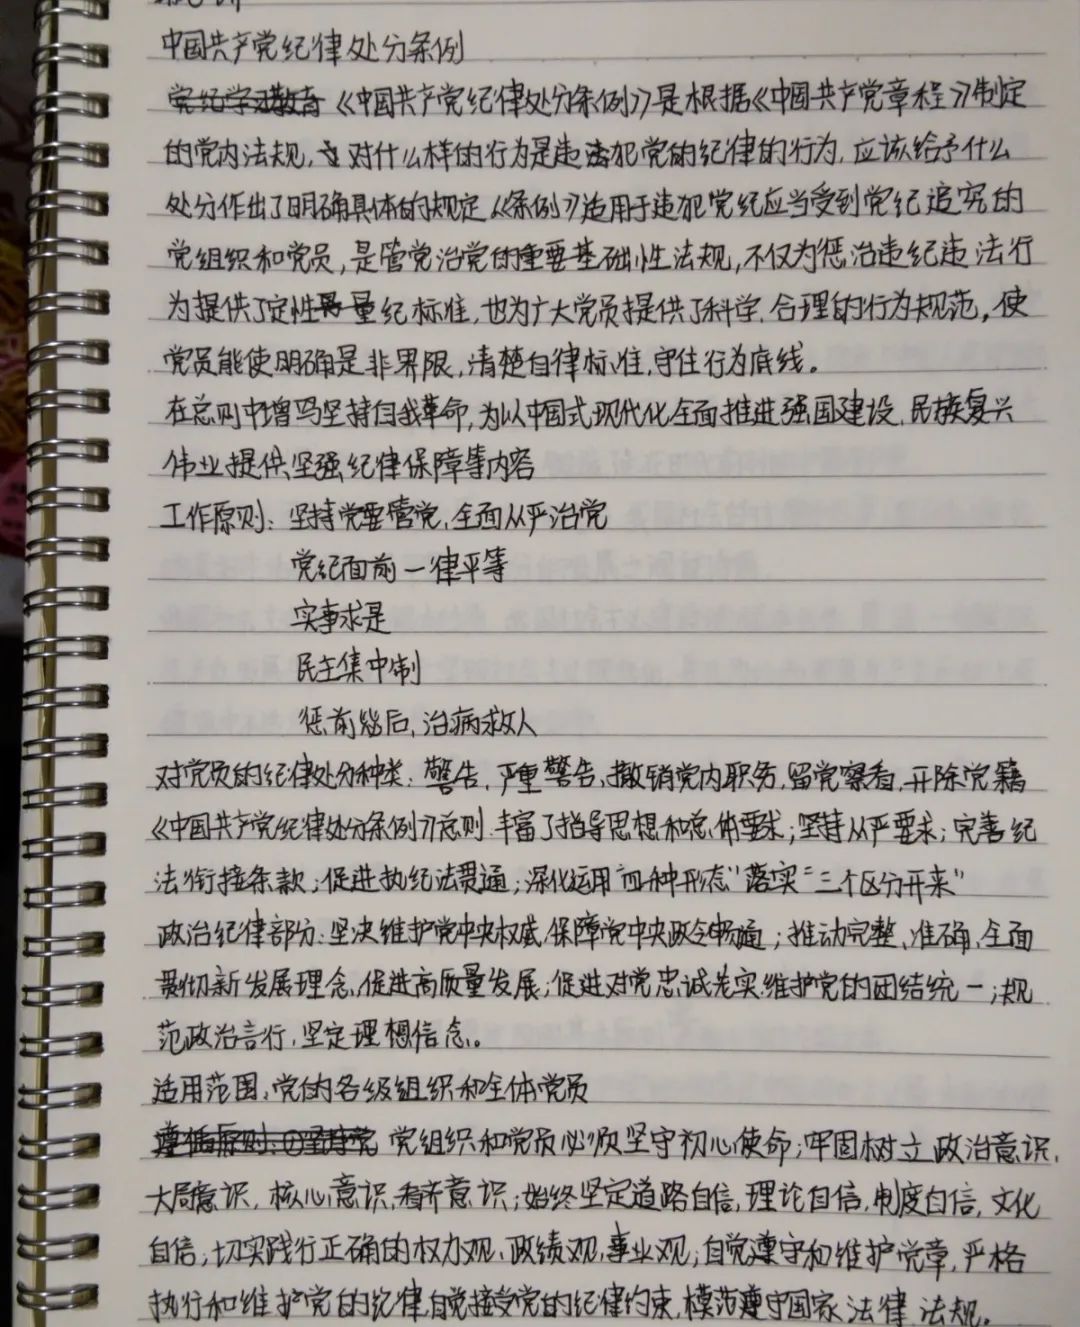 中国共产党纪律处分条例
党纪学习教育《中国共产党纪律处分条例》是根据《中国共产党章程》制定
的党内法规,对什么样的行为是违法犯党的纪律的行为,应该给予什么
处分作出了明确具体的规定《条例》适用于违犯党纪应当受到党纪追究的
党组织和党员,是管党治党的重要基础性法规,不仅为惩治违纪违法行
为提供了定性量纪标准,也为广大党员提供了科学、合理的行为规范,使
党员能使明确是非界限,清楚自律标准,守住行为底线。
在总则中增写坚持自我革命,为以中国式现代化全面推进强国建设、民族复兴
伟业提供坚强纪律保障等内容
工作原则:坚持党要管党,全面从严治党
党纪面前一律平等
实事求是
民主集中制
惩前毖后,治病救人
对党员的纪律处分种类:警告,严重警告,撤销党内职务,留党察看,开除党籍
《中国共产党纪律处分条例》总则.丰富了指导思想和总体要求;坚持从严要求;完善纪
法衔接条款;促进执纪法贯通;深化运用"四种形态"落实"三个区分开来"
政治纪律部分:坚决维护党中央权威,保障党中央政令畅通;推动完整、准确、全面
贯彻新发展理念,促进高质量发展;促进对党忠诚老实,维护党的团结统一;规
范政治言行,坚定理想信念。
适用范围:党的各级组织和全体党员
遵循原则:①坚持党 党组织和党员必须坚守初心使命;牢固树立政治意识,
大局意识,核心意识,看齐意识;始终坚定道路自信,理论自信,制度自信,文化
自信;切实践行正确的权力观,政绩观,事业观;自觉遵守和维护党章,严格
执行和维护党的纪律,自觉接受党的纪律约束,模范遵守国家法律法规。